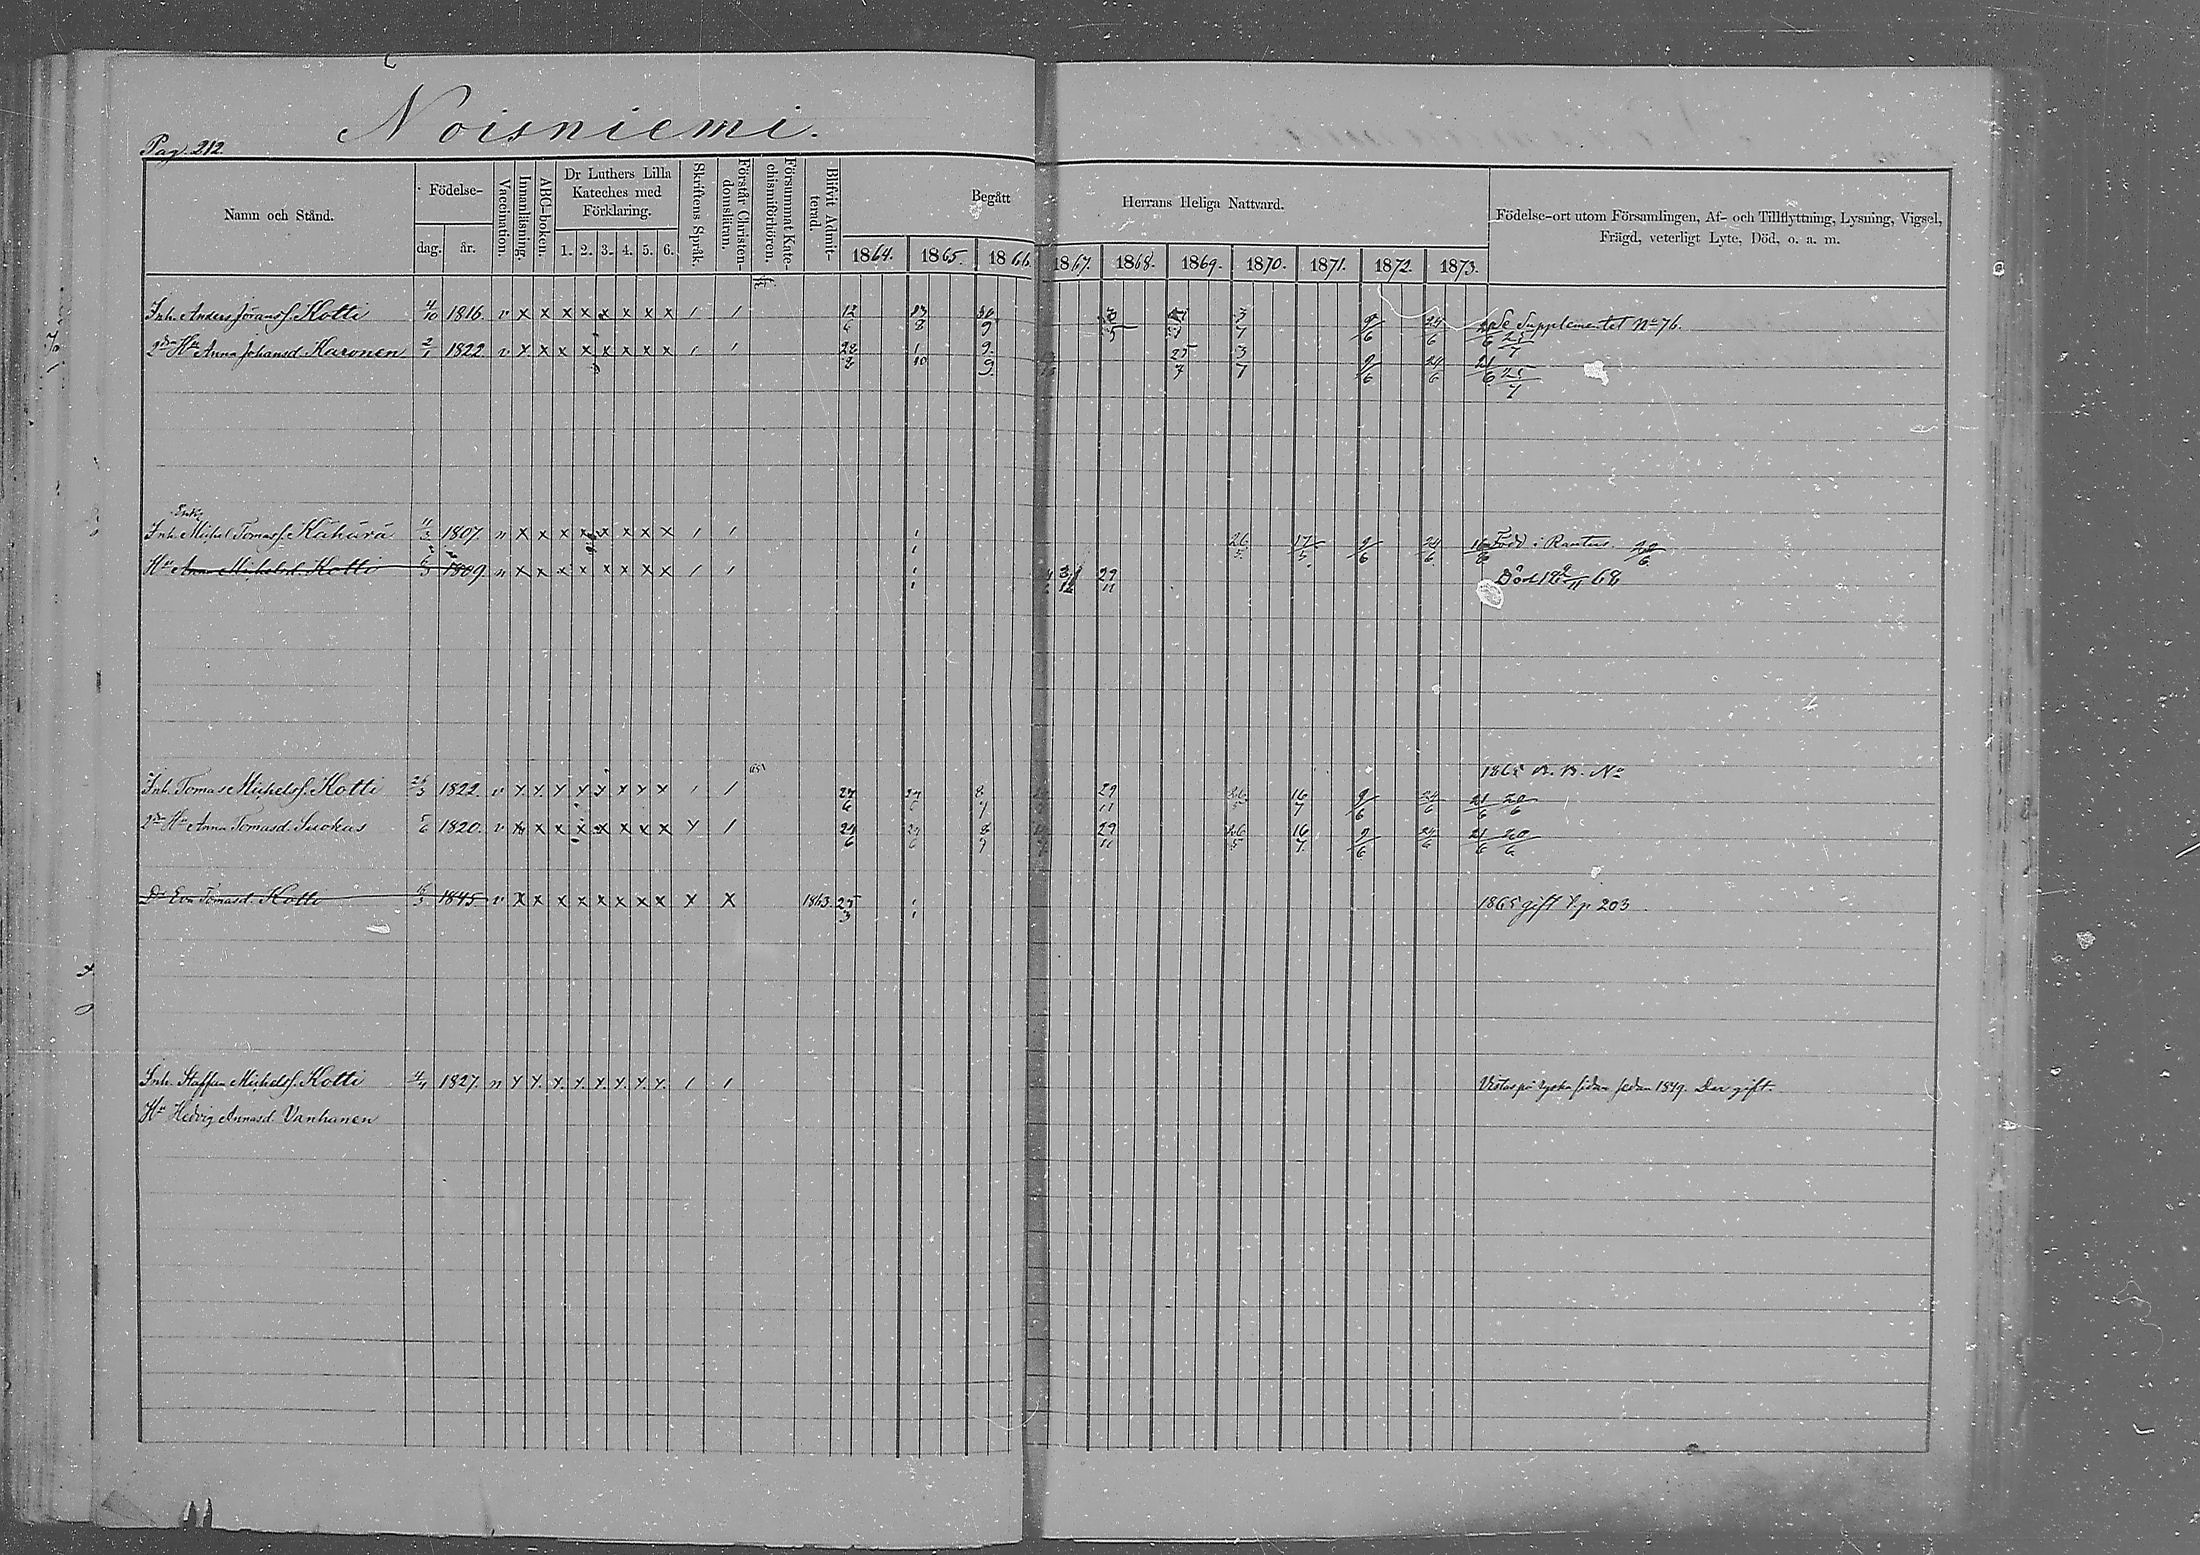 Noisniemi.
Pag. 212.
Namn och Stånd.
Födelse-
dag. år.
Vaccination.
Innanläsning.
ABC-boken.
Dr Luthers Lilla Kateches med Förklaring.
1. 2. 3. 4. 5. 6.
Skriftens Språk.
Förstår Christendomsläran.
Försummat Katechismiförhören.
Blifvit Admitterad.
Begått Herrans Heliga Nattvard.
1864. 1865. 1866. 1867. 1868. 1869. 1870. 1871. 1872. 1873.
Födelse-ort utom Församlingen, Af- och Tillflyttning, Lysning, Vigsel,
Frägd, veterligt Lyte, Död, o. a. m.
Inh. Anders Jöranss. Kotti 4/10 1816. v x x x x x x x x / / 12/6 9/6 24/6 Se Supplementet No 76.
2dra Hu Anna Johansd. Karonen 2/1 1822 v x x x x x x x x / / 25/7 3/7 9/6 24/6 21/6 25/7
Enkl.
Inh. Michel Tomass. Kähärä 4/3 1807. n x x x x x x x x / / 26/5 17/5 9/6 24/6 Född i Rautus. 20/6
Hu Anna Michelsd. Kotti 1809. n x x x x x x x x / / 29/11 Död 18 9/11 68
1865 N. B. No
Inh. Tomas Michelss. Kotti 26/3 1822. v x x x x x x x x / / 24/6 8/7 29/11 26/5 16/7 9/6 24/6 21/6 20/6
2dra Hu Anna Tomasd. Suokas 5/6 1820. v x x x x x x x x x / 24/6 8/7 29/11 26/5 16/7 9/6 24/6 21/6 20/6
Dr Eva Tomasd. Kotti 1845 v x x x x x x x x x x 1863. 25/3 1865 gift T. p. 203
Inh. Staffan Michelss. Kotti 4/4 1827. n x x x x x x x x / / Vistas på ryska sidan sedan 1849. Der gift.
Hu Hedvig Annasd. Vanhanen